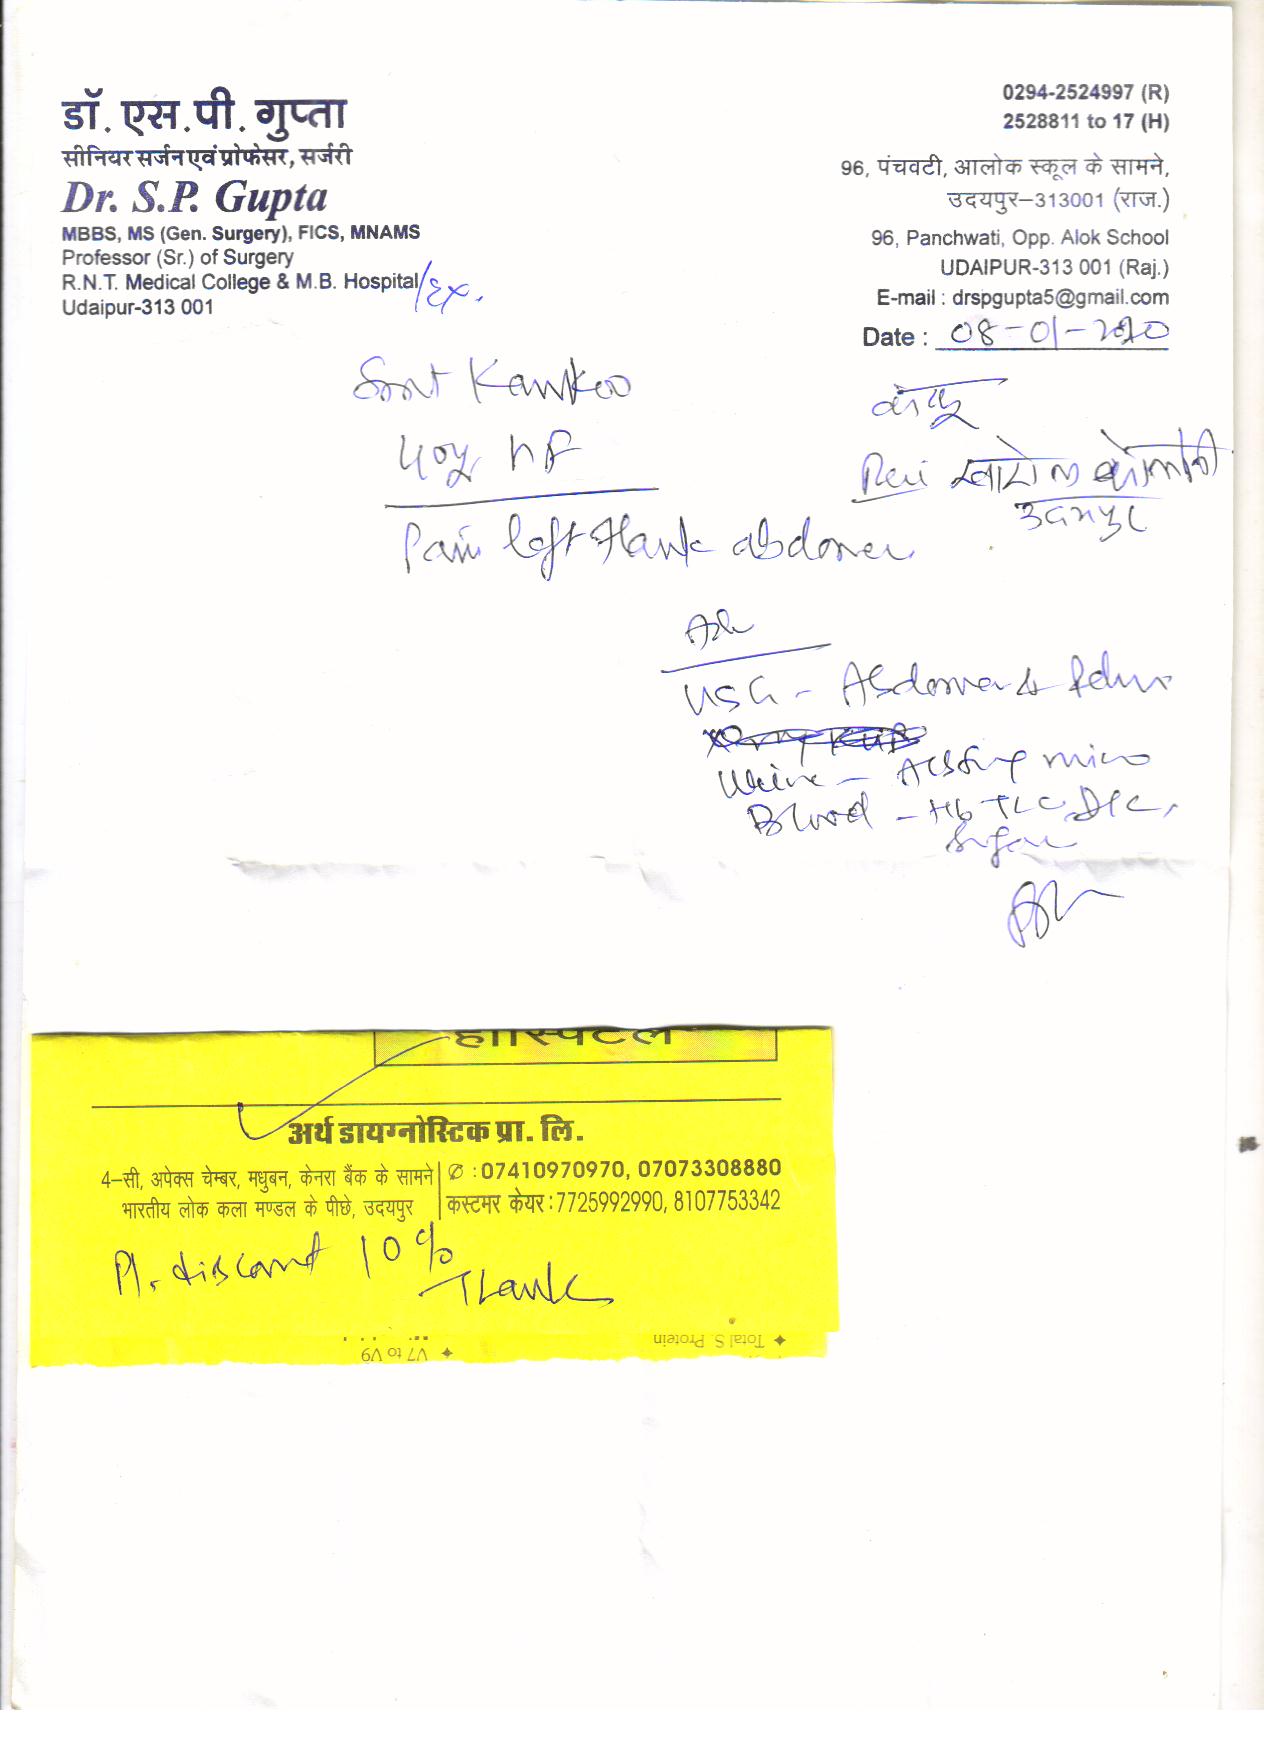 डॉ. एस.पी. गुप्ता
सीनियर सर्जन एवं प्रोफेसर, सर्जरी
Dr. S.P. Gupta
MBBS, MS (Gen. Surgery), FICS, MNAMS
Professor (Sr.) of Surgery
R.N.T. Medical College & M.B. Hospital/Ex.
Udaipur-313 001
0294-2524997 (R)
2528811 to 17 (H)
96, पंचवटी, आलोक स्कूल के सामने,
उदयपुर–313001 (राज.)
96, Panchwati, Opp. Alok School
UDAIPUR-313 001 (Raj.)
E-mail : drspgupta5@gmail.com
Date : 08-01-2020
Smt Kankoo
40y HF
Pain left Flank abdomen
उदयपुर
Adv
USG - Abdomen & Pelvis
Urine - micro
Blood - Hb TLC, DLC,
Sugar
हॉस्पिटल
अर्थ डायग्नोस्टिक प्रा. लि.
4–सी, अपेक्स चेम्बर, मधुबन, केनरा बैंक के सामने
भारतीय लोक कला मण्डल के पीछे, उदयपुर
✆ : 07410970970, 07073308880
कस्टमर केयर : 7725992990, 8107753342
Pl. discount 10%
Thank
Total S. Protein
V7 to V9